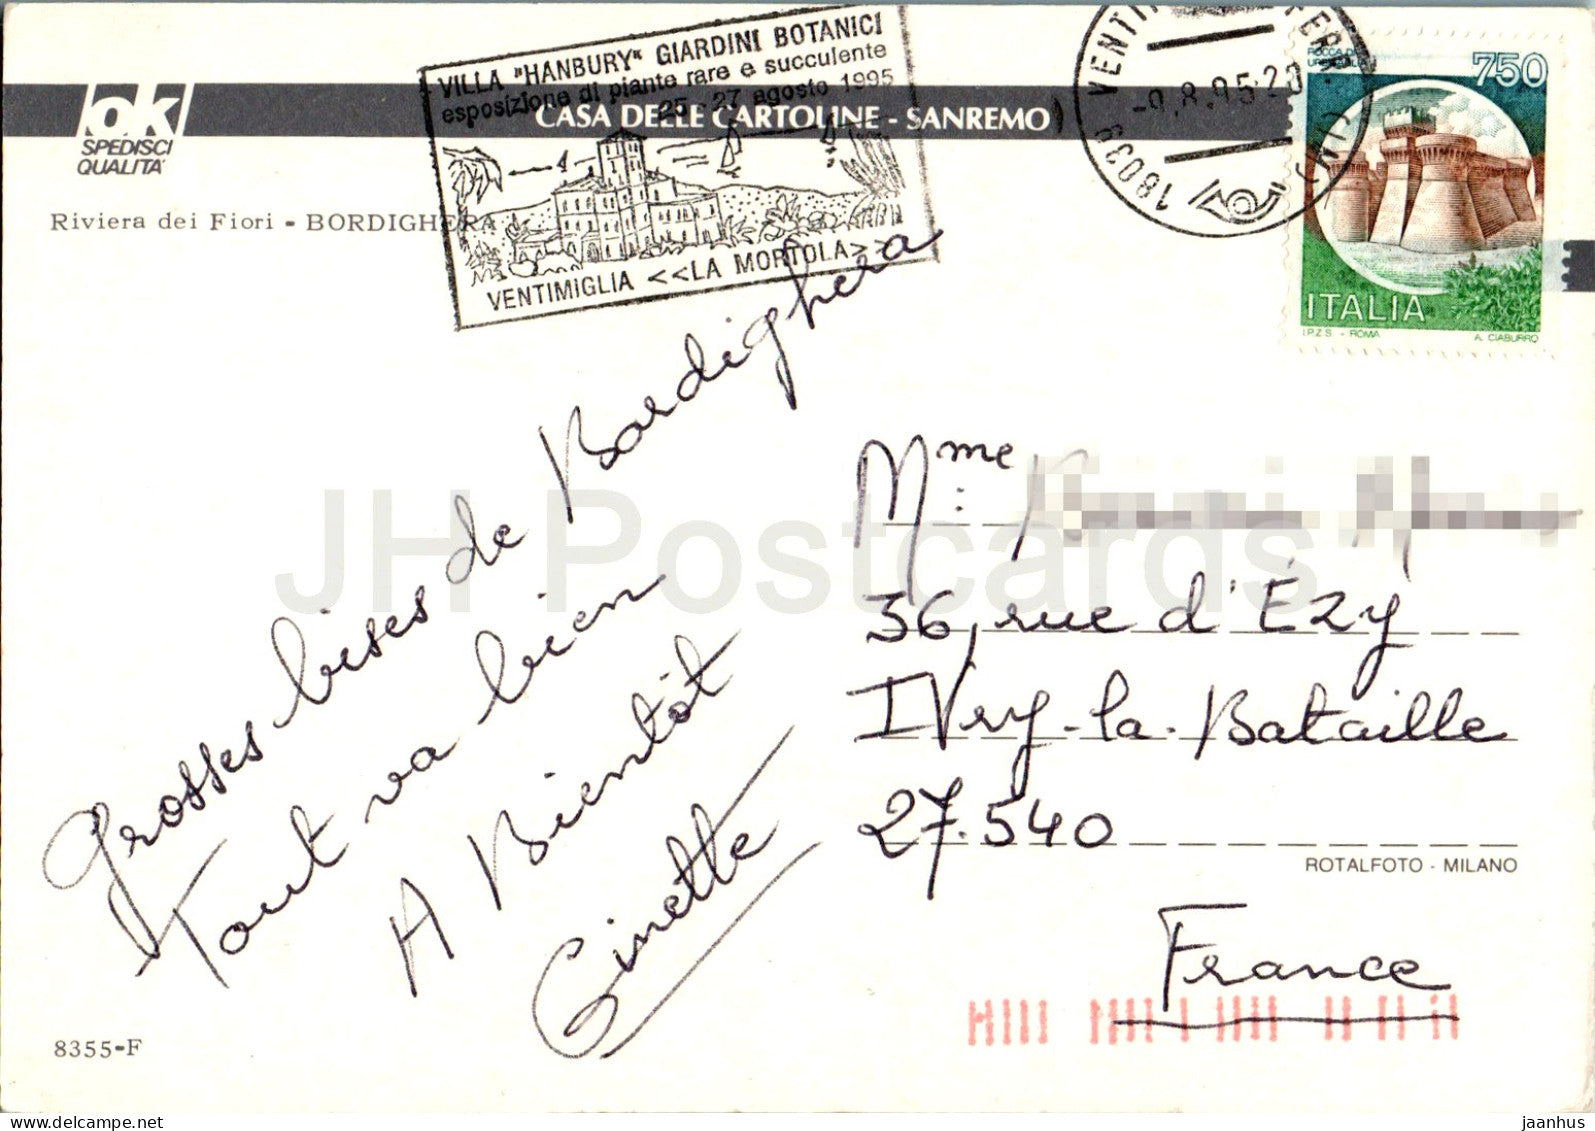 VILLA "HANBURY" GIARDINI BOTANICI
esposizione di piante rare e succulente
25-27 agosto 1995
VENTIMIGLIA <<LA MORTOLA>>
18039 VENTI
-9.8.95-20
ROCCA DI
750
ITALIA
I.P.Z.S. - ROMA
A. CIABURRO
ok
SPEDISCI
QUALITA'
CASA DELLE CARTOLINE - SANREMO
Riviera dei Fiori - BORDIGHERA
Grosses bises de Bordighera
Tout va bien
A Bientôt
Ginette
Mme
36, rue d'Ézy
IVry-la-Bataille
27.540
France
ROTALFOTO - MILANO
8355-F
JH Postcards
www.delcampe.net
jaanhus